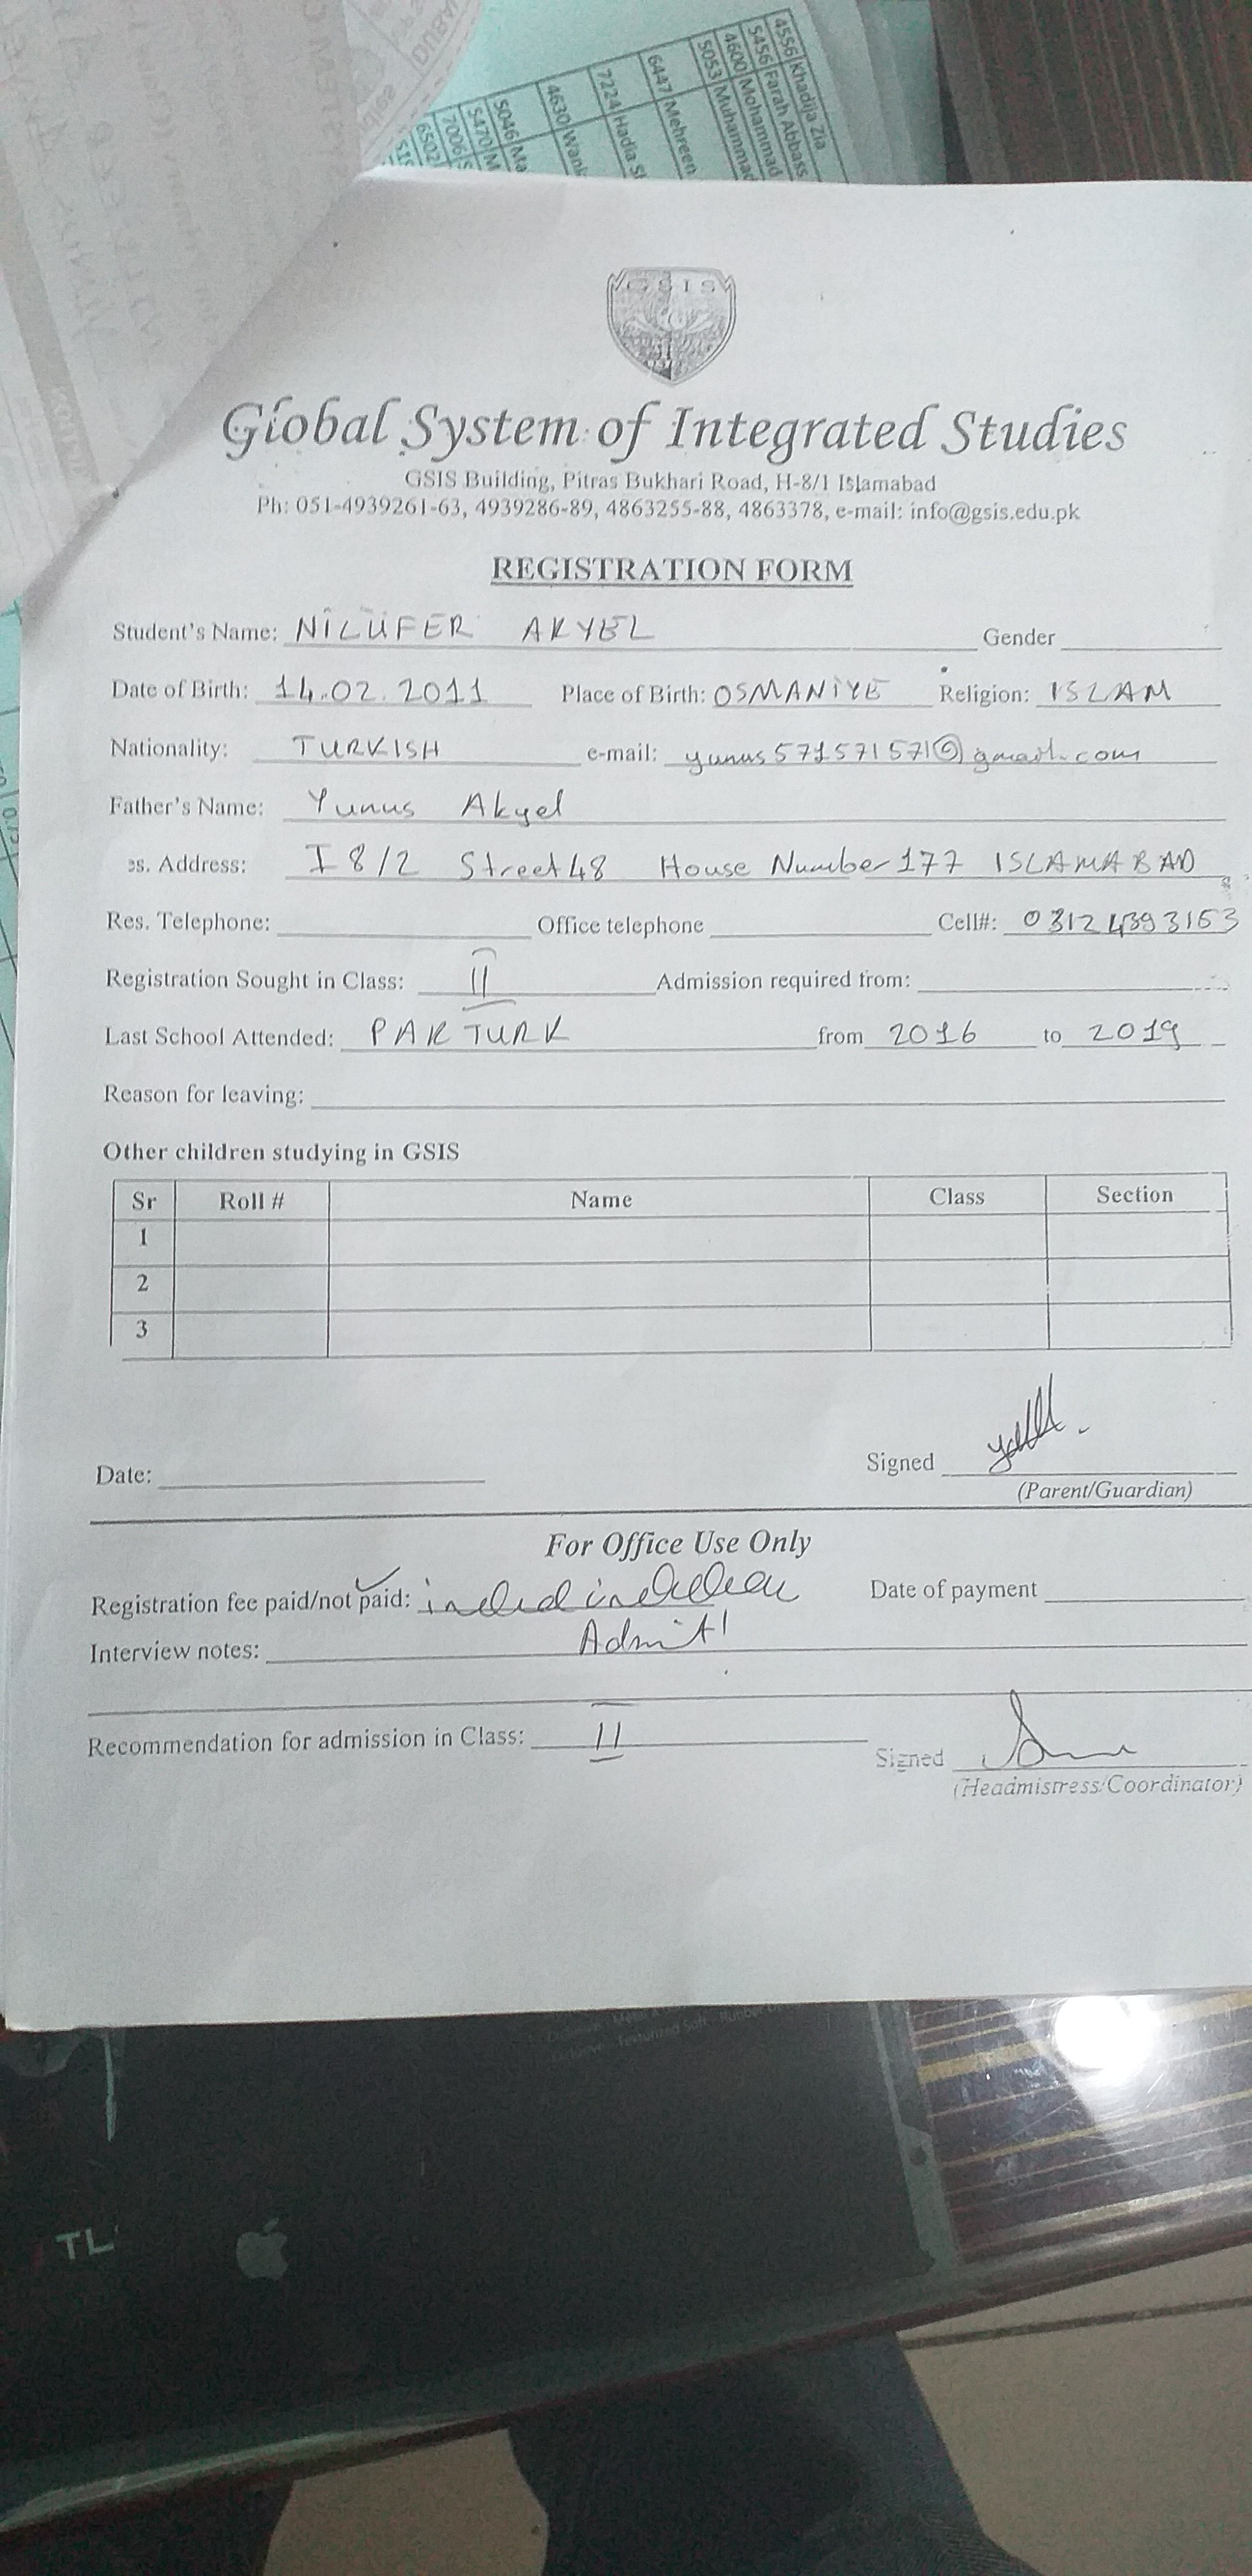 4556 Khadija Zia
5456 Farah Abbass
4600 Mohammad
5053 Muhammad
6447 Mehreen
7224 Hadia
4630
5046 Ma
5470 M
7006 S
6502
GSIS
Global System of Integrated Studies
GSIS Building, Pitras Bukhari Road, H-8/1 Islamabad
Ph: 051-4939261-63, 4939286-89, 4863255-88, 4863378, e-mail: info@gsis.edu.pk
REGISTRATION FORM
Student's Name: NİLÜFER AKYEL Gender
Date of Birth: 14.02.2011 Place of Birth: OSMANİYE Religion: ISLAM
Nationality: TURKISH e-mail: yunus571571571@gmail.com
Father's Name: Yunus Akyel
es. Address: I 8/2 Street 48 House Number 177 ISLAMABAD
Res. Telephone: Office telephone Cell#: 0312 4393153
Registration Sought in Class: II Admission required from:
Last School Attended: PAK TURK from 2016 to 2019
Reason for leaving:
Other children studying in GSIS
Sr Roll # Name Class Section
1
2
3
Date: Signed
(Parent/Guardian)
For Office Use Only
Registration fee paid/not paid: Date of payment
Interview notes: Admit
Recommendation for admission in Class: II Signed
(Headmistress/Coordinator)
TL